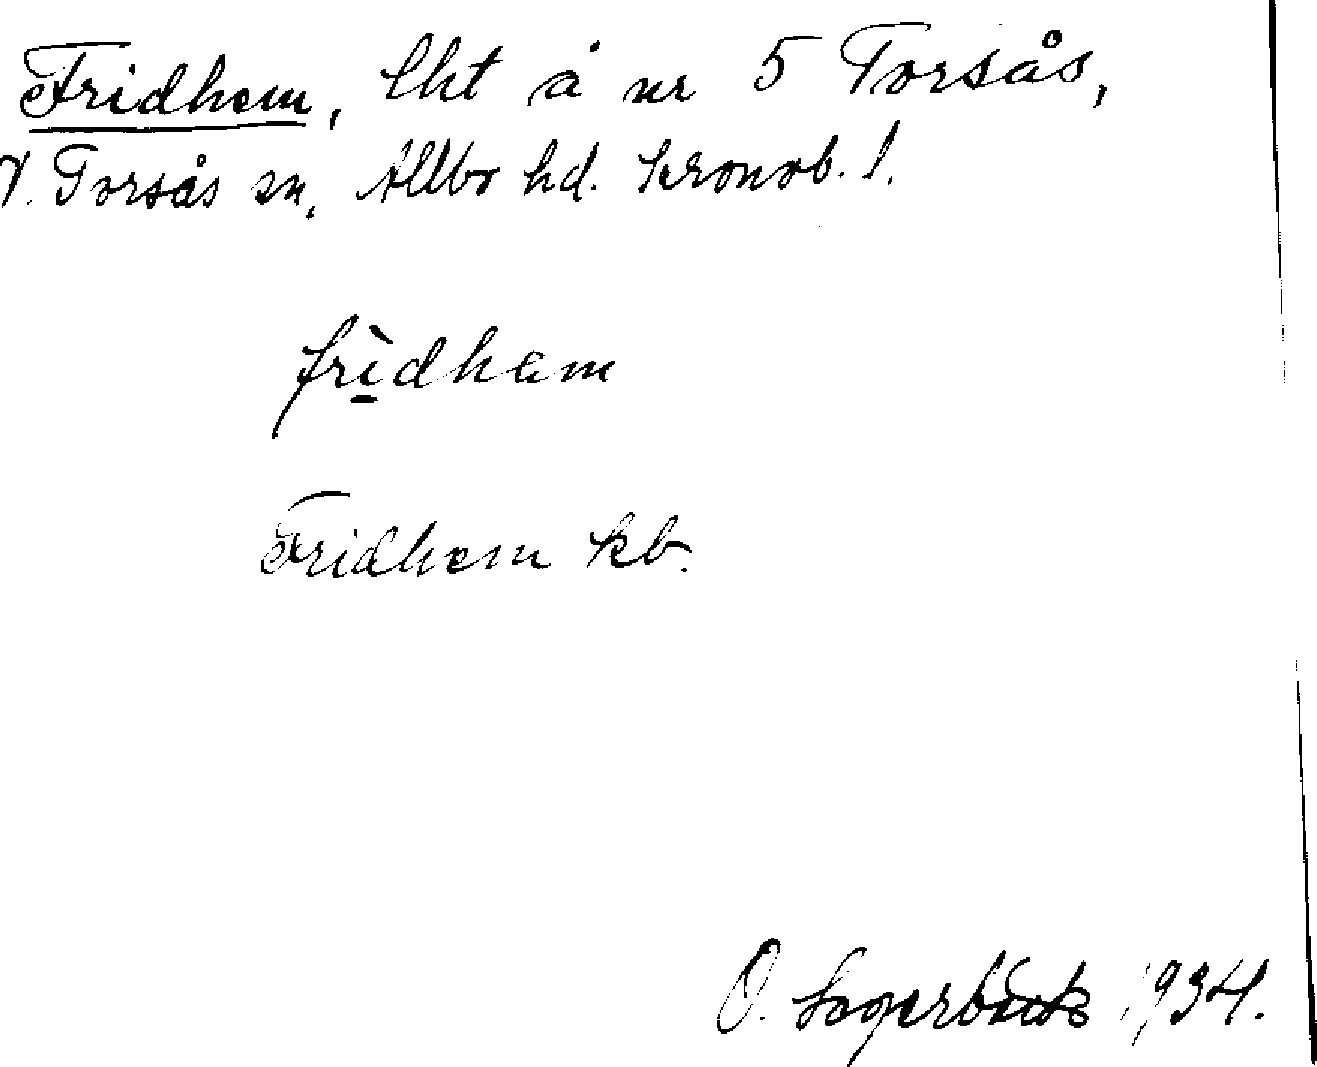 Fridhem, lht å nr 5 Torsås,
V. Torsås sn, Allbo hd. Kronob. l.
frìdhem
Fridhem kb.
O. 1934.